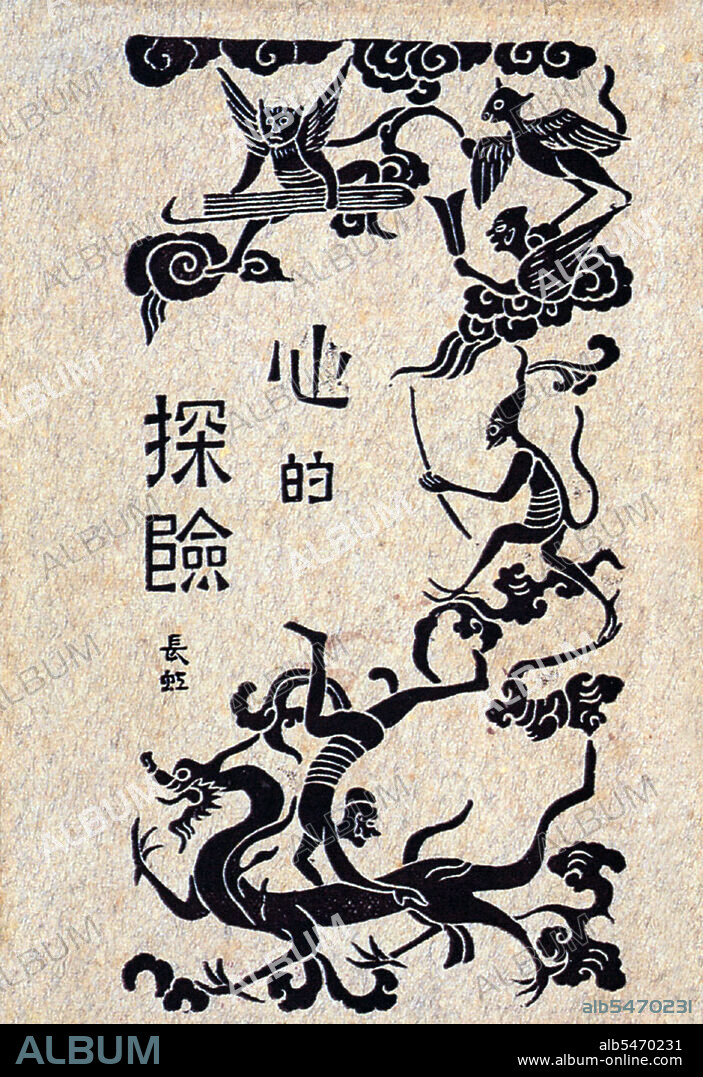 心的
探險
長虹
ALBUM
alb5470231
ALBUM
alb5470231
www.album-online.com